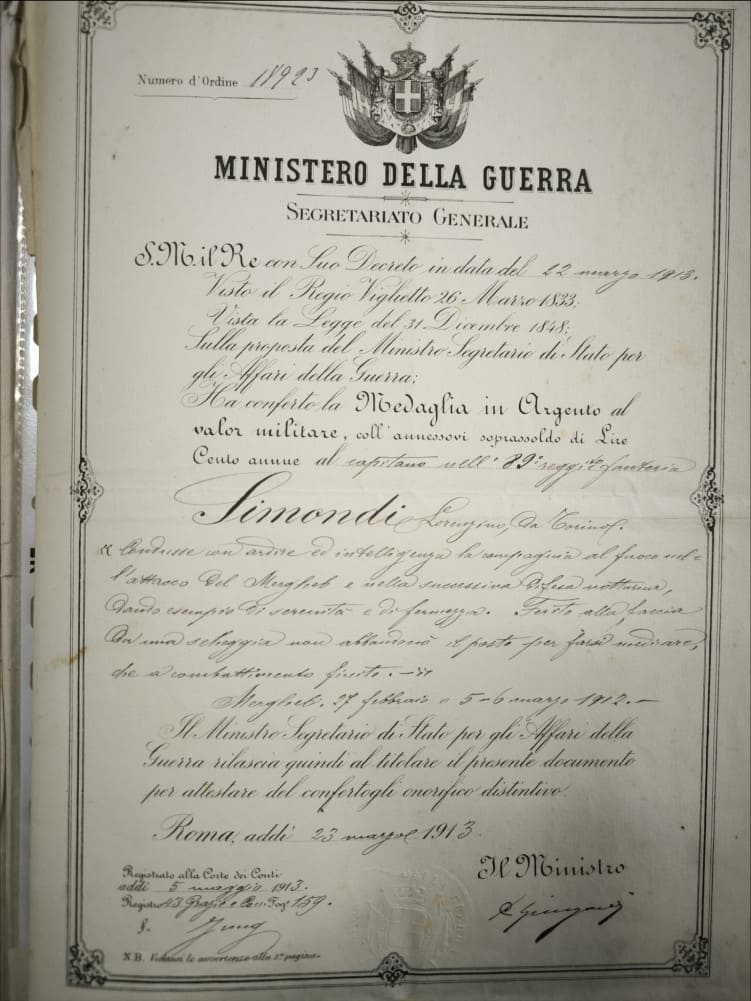 Numero d'Ordine 18923
MINISTERO DELLA GUERRA
SEGRETARIATO GENERALE
S. M. il Re con Suo Decreto in data del 22 marzo 1913.
Visto il Regio Viglietto 26 Marzo 1833;
Vista la Legge del 31 Dicembre 1848;
Sulla proposta del Ministro Segretario di Stato per
gli Affari della Guerra;
Ha conferto la Medaglia in Argento al
valor militare, coll'annessovi soprassoldo di Lire
Cento annue al capitano nell' 89° reggito fanteria
Simondi Lorenzino, da Torino.
"Condusse con ardire ed intelligenza la compagnia al fuoco nel-
l'attacco del Mergheb e nella successiva difesa notturna,
dando esempio di serenità e di fermezza. Ferito alla faccia
da una scheggia non abbandonò il posto per farsi medicare,
che a combattimento finito. -"
Mergheb, 27 febbraio e 5-6 marzo 1912. -
Il Ministro Segretario di Stato per gli Affari della
Guerra rilascia quindi al titolare il presente documento
per attestare del confertogli onorifico distintivo.
Roma, addì 23 marzo 1913.
Registrato alla Corte dei Conti
addì 5 maggio 1913.
Registro 43 Fog. 159.
f. Jung
Il Ministro
N.B. Vedansi le avvertenze alla 2ª pagina.